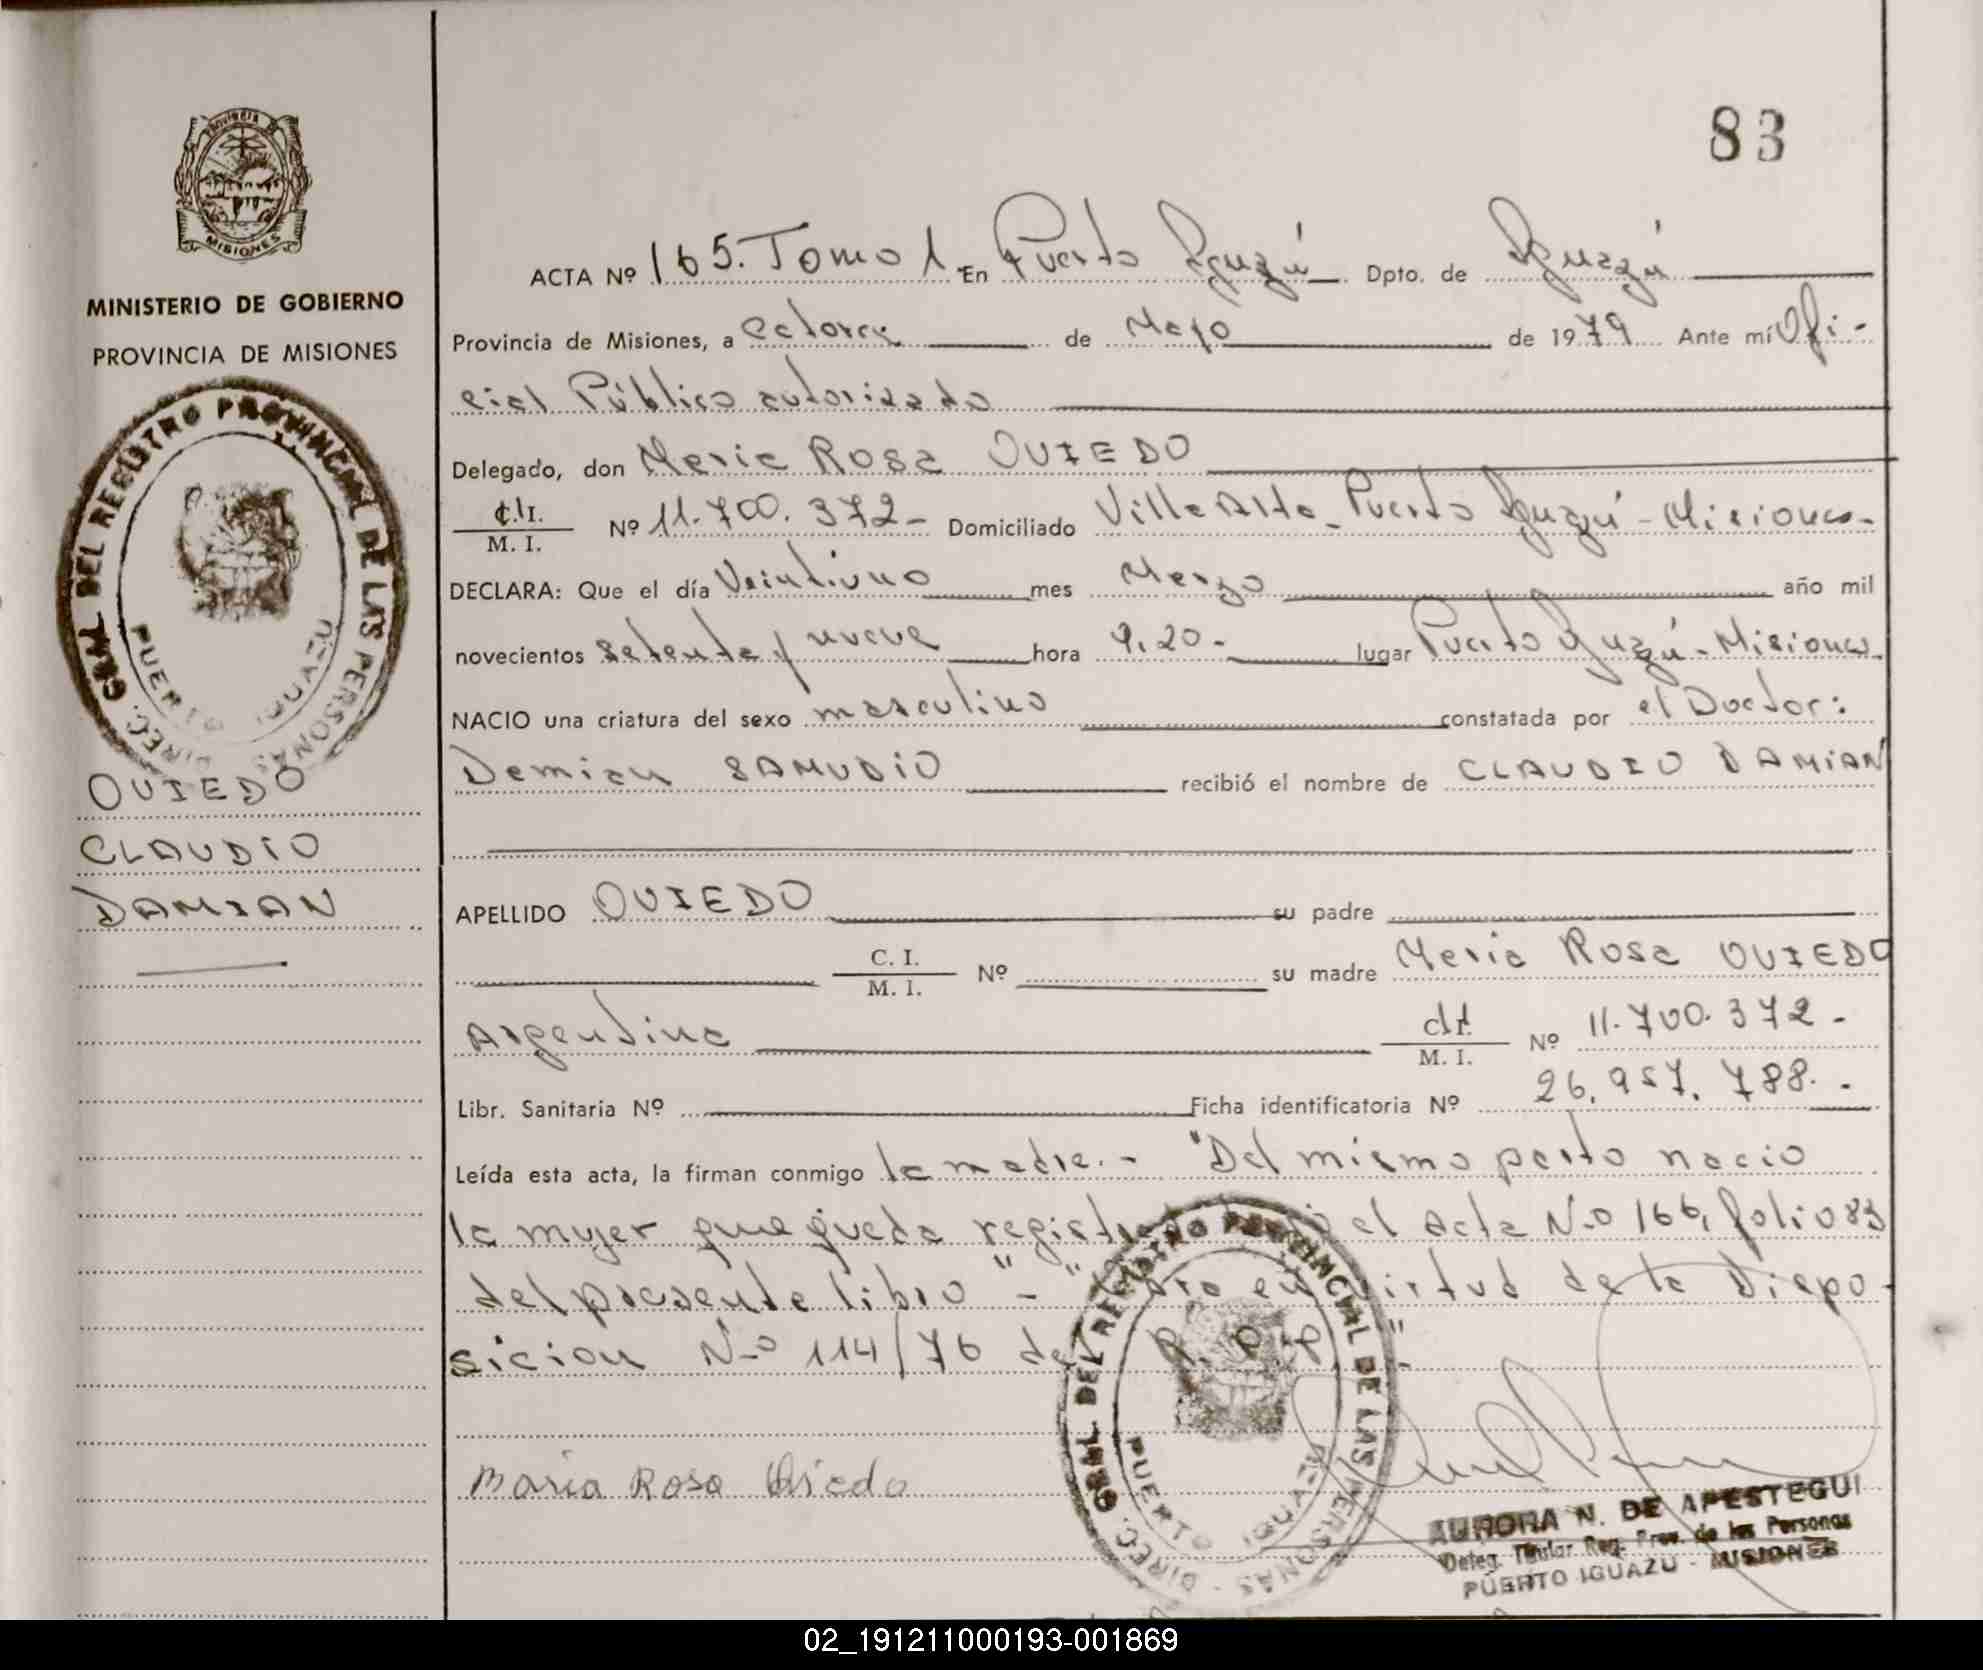 83
PROVINCIA DE
MISIONES
MINISTERIO DE GOBIERNO
PROVINCIA DE MISIONES
DIREC. GRAL. DEL REGISTRO PROVINCIAL DE LAS PERSONAS
PUERTO IGUAZU
OVIEDO
CLAUDIO
DAMIAN
ACTA Nº 165. Tomo 1. En Puerto Iguazú Dpto. de Iguazú
Provincia de Misiones, a Catorce de Mayo de 1979 Ante mí Ofi-
cial Público autorizado
Delegado, don Maria Rosa OVIEDO
C.I.
M. I. Nº 11.700.372- Domiciliado Villa Alta- Puerto Iguazú - Misiones-
DECLARA: Que el día Veintiuno mes Marzo año mil
novecientos setenta y nueve hora 9,20- lugar Puerto Iguazú- Misiones
NACIO una criatura del sexo masculino constatada por el Doctor:
Damian SAMUDIO recibió el nombre de CLAUDIO DAMIAN
APELLIDO OVIEDO su padre
C. I.
M. I. Nº su madre Maria Rosa OVIEDO
Argentina M. I. Nº 11.700.372-
Libr. Sanitaria Nº Ficha identificatoria Nº 26.957.788.-
Leída esta acta, la firman conmigo la madre.- "Del mismo parto nacio
la mujer que queda registrada el Acta Nº 166, folio 83
del presente libro" - " en virtud de la Dispo-
sicion Nº 114/76 del R.P.P."-
Maria Rosa Oviedo
DIREC. GRAL. DEL REGISTRO PROVINCIAL DE LAS PERSONAS
PUERTO IGUAZU
AURORA N. DE APESTEGUI
Deleg. Titular Reg. Prov. de las Personas
PUERTO IGUAZU - MISIONES
02_191211000193-001869